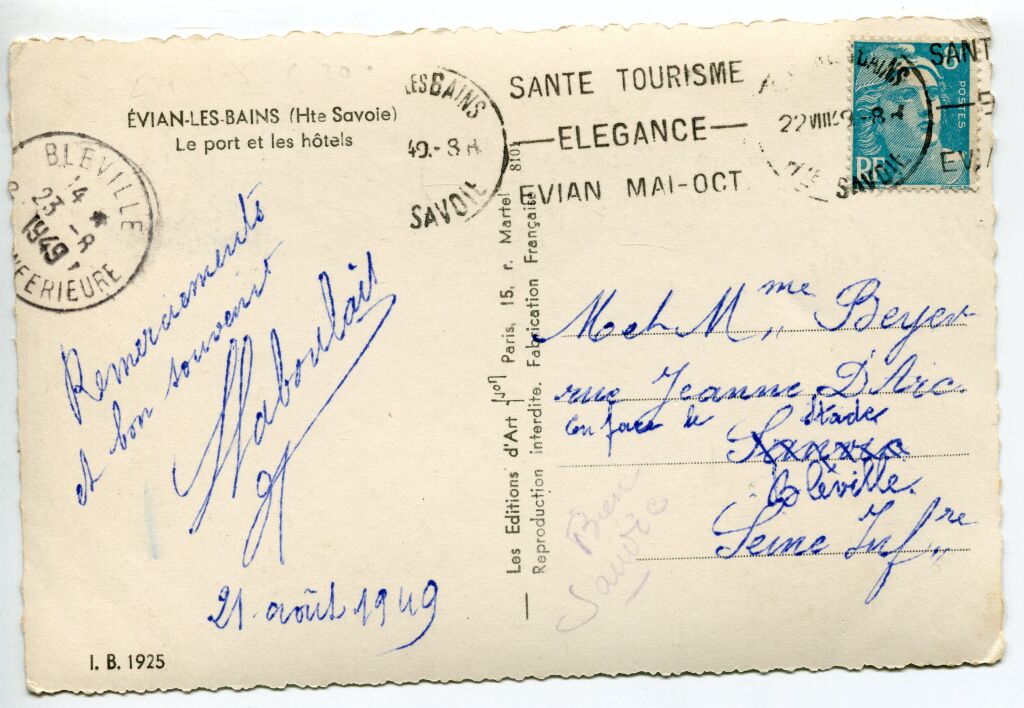 ÉVIAN-LES-BAINS (Hte Savoie)
Le port et les hôtels
BLÉVILLE
14 *
23 -8
1949
INFERIEURE
LES BAINS
49.- 8 H
SAVOIE
SANTE TOURISME
ELEGANCE
EVIAN MAI-OCT
BAINS
22 VIII 49 - 8 H
HTE SAVOIE
SANT
EVI
POSTES
RF
Remerciements
et bon souvenir
21 août 1949
I. B. 1925
Les Editions d'Art Yvon Paris, 15, r. Martel 8101
Reproduction interdite. Fabrication Française
M et Mme Beyer
rue Jeanne D'Arc
En face le stade
Sanvic
Bléville.
Seine Infre
Bien
Sanvic